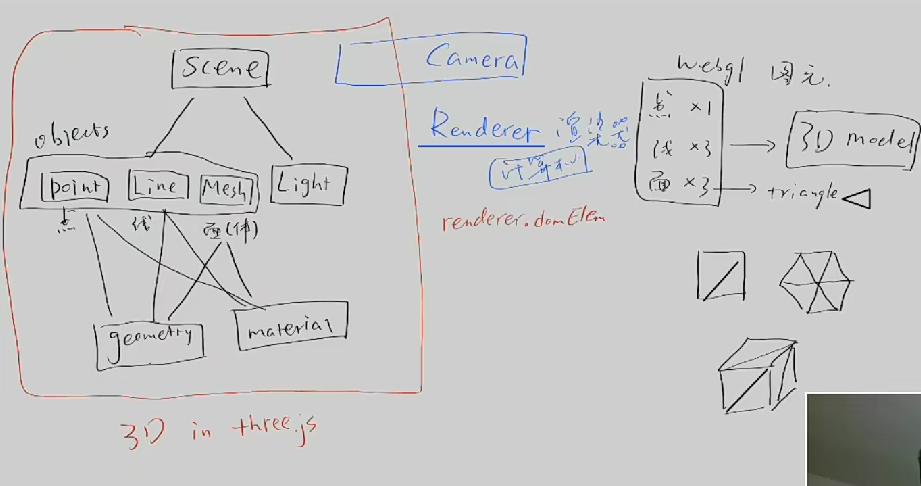 Scene
objects
point
Line
Mesh
Light
点
线
面(体)
geometry
material
3D in three.js
Camera
Renderer 渲染器
renderer.domElem
webgl 图元.
点 ×1
线 ×3
面 ×3
3D model
triangle